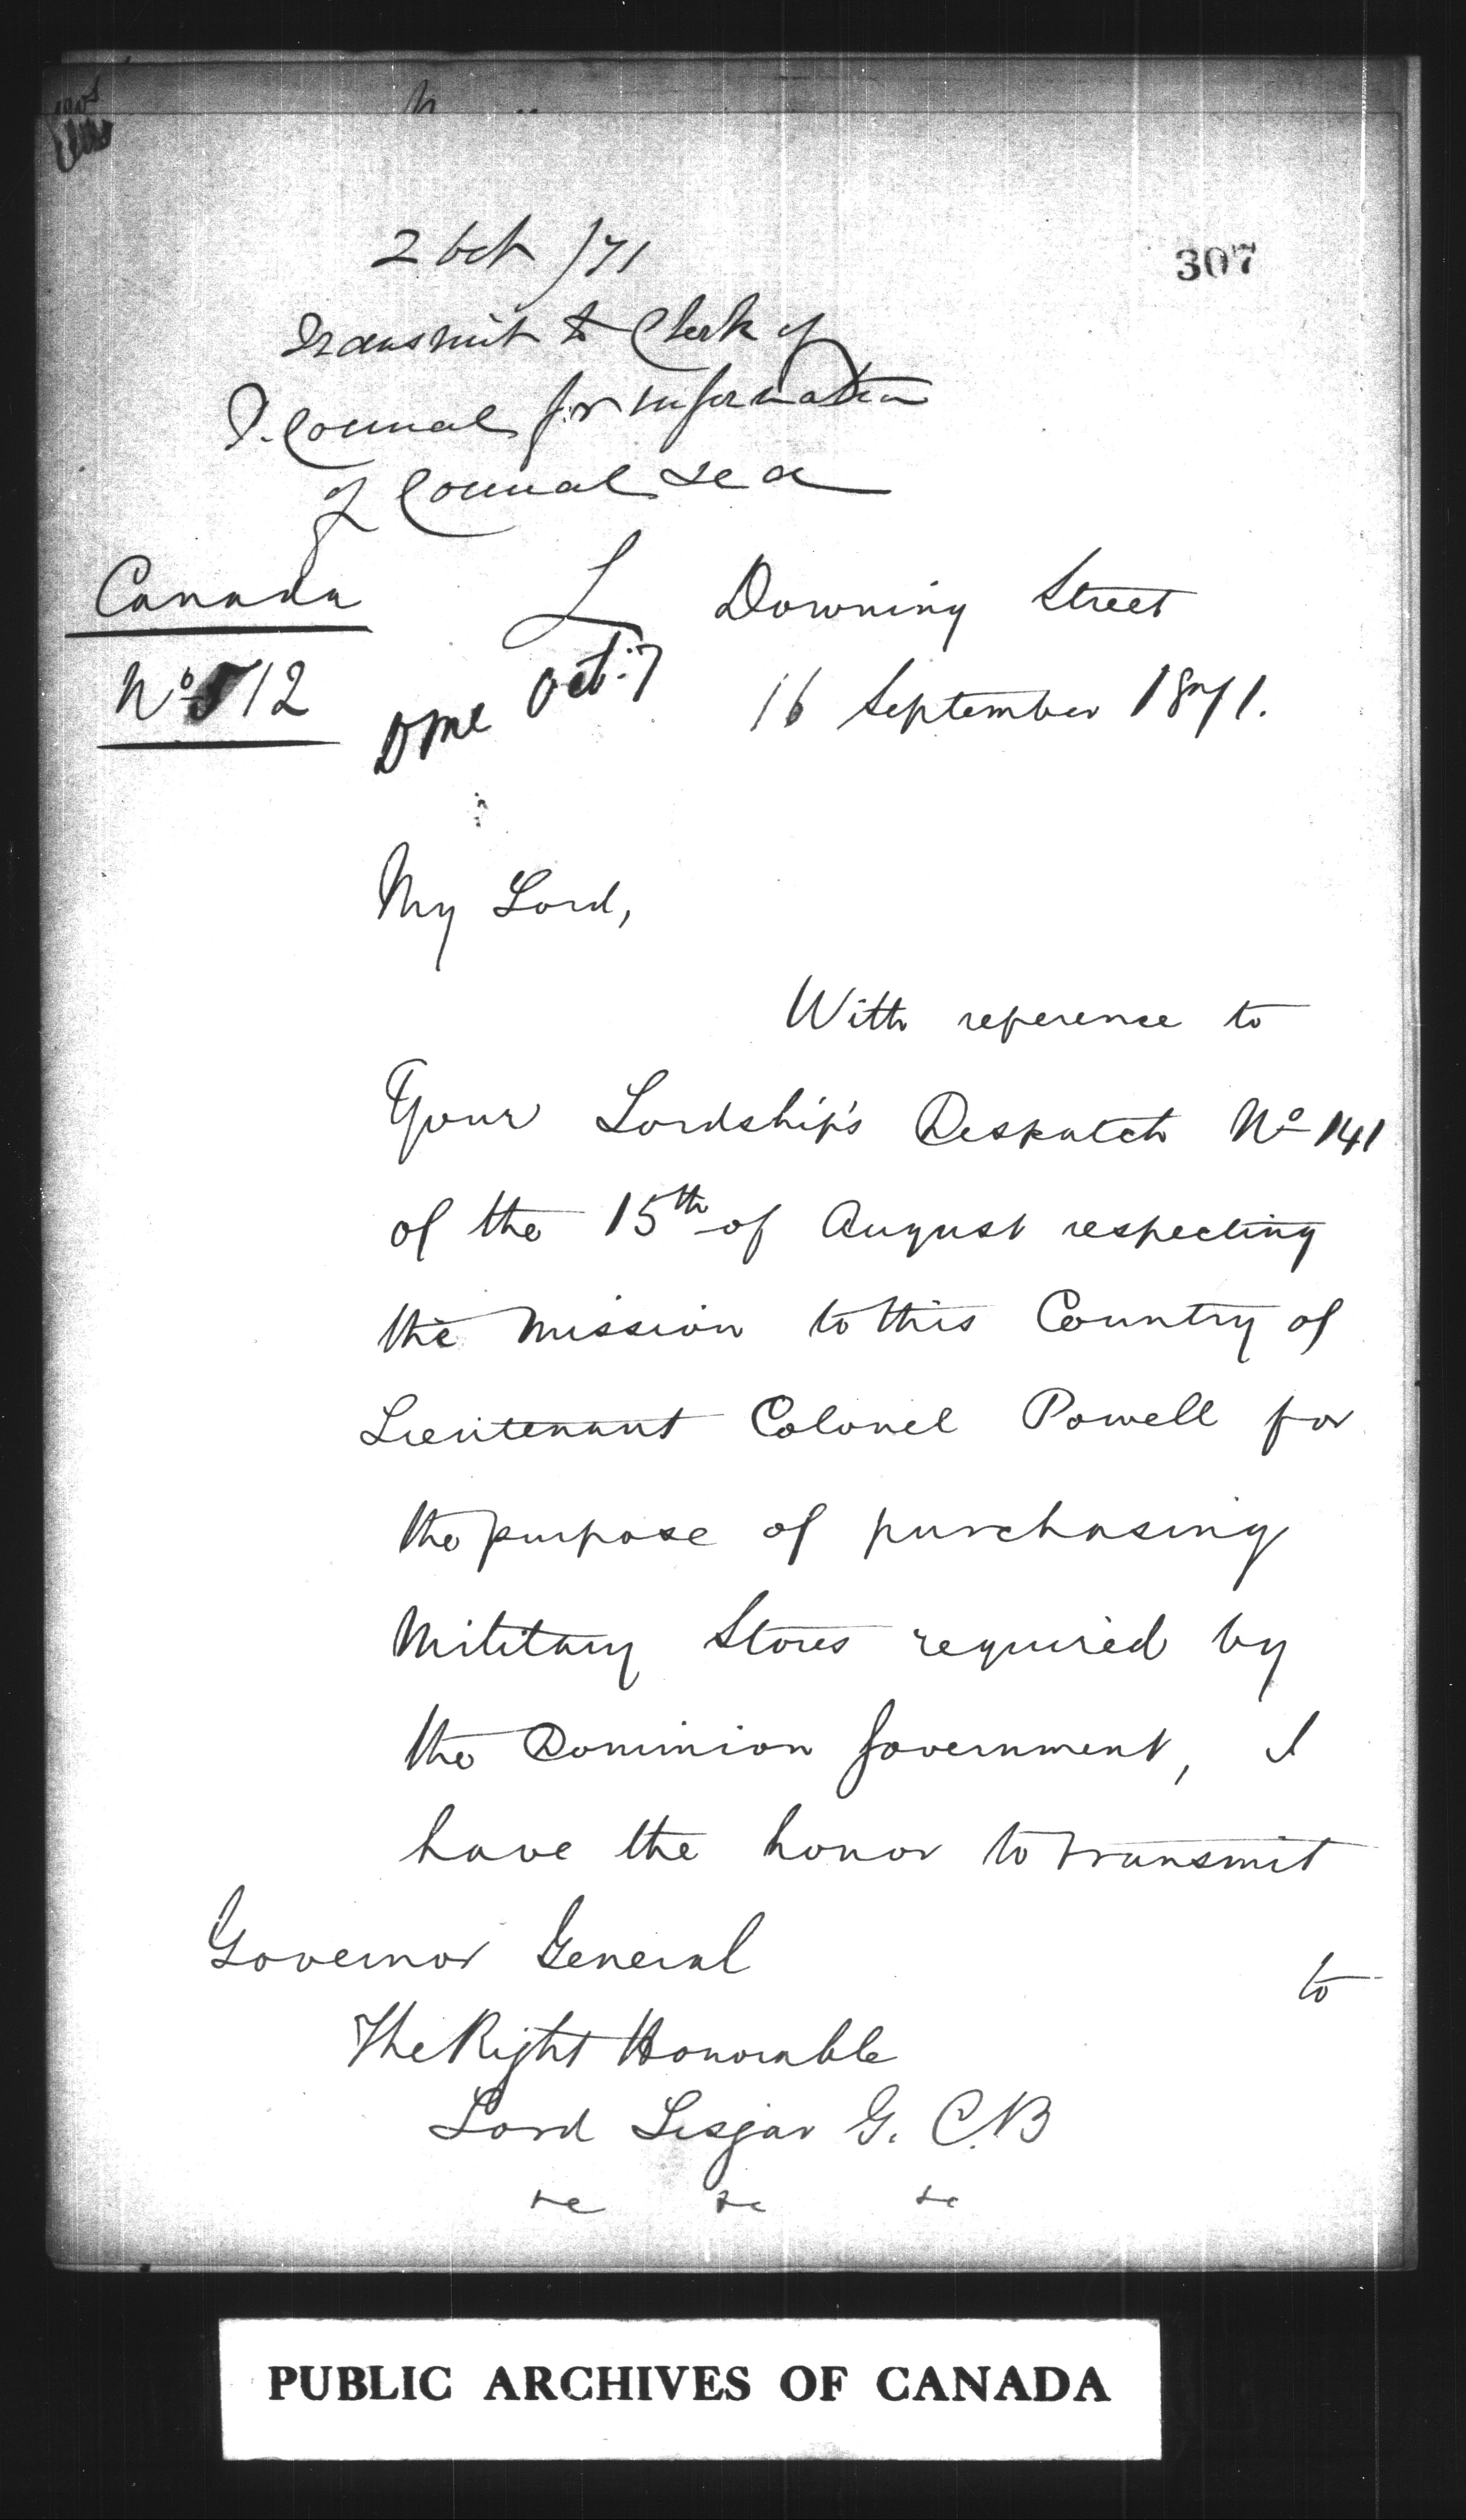 307
2 Oct /71
Transmit to Clerk of
P. Council for information
of Council &c &c
L
Canada
Nº 512
Done Oct: 7
Downing Street
16 September 1871.
My Lord,
With reference to
Your Lordship's Despatch Nº 141
of the 15th of August respecting
the Mission to this Country of
Lieutenant Colonel Powell for
the purpose of purchasing
Military Stores required by
the Dominion Government, I
have the honor to transmit
to
Governor General
The Right Honorable
Lord Lisgar G. C. B
&c &c &c
PUBLIC ARCHIVES OF CANADA